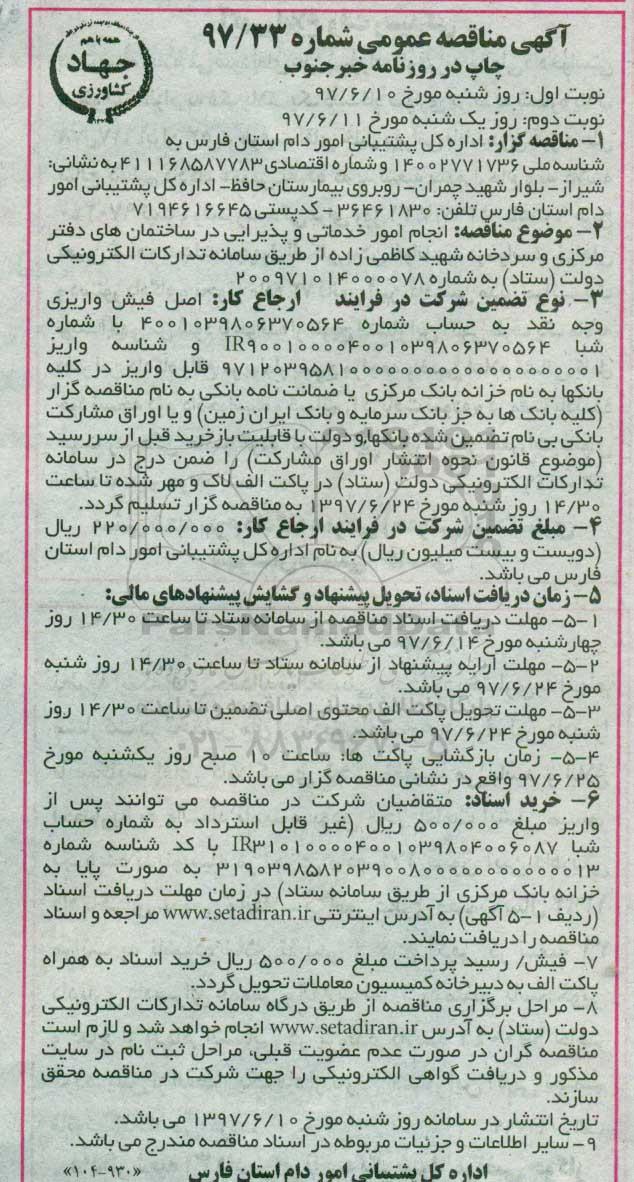 آگهی مناقصه عمومی شماره ۹۷/۳۳
چاپ در روزنامه خبرجنوب
همه با هم
جهاد
کشاورزی
نوبت اول: روز شنبه مورخ ۹۷/۶/۱۰
نوبت دوم: روز یک شنبه مورخ ۹۷/۶/۱۱
۱- مناقصه گزار: اداره کل پشتیبانی امور دام استان فارس به
شناسه ملی ۱۴۰۰۲۷۷۱۷۳۶ و شماره اقتصادی ۴۱۱۱۶۸۵۸۷۷۸۳ به نشانی:
شیراز- بلوار شهید چمران- روبروی بیمارستان حافظ- اداره کل پشتیبانی امور
دام استان فارس تلفن: ۳۶۴۶۱۸۳۰ - کدپستی ۷۱۹۴۶۱۶۶۴۵
۲- موضوع مناقصه: انجام امور خدماتی و پذیرایی در ساختمان های دفتر
مرکزی و سردخانه شهید کاظمی زاده از طریق سامانه تدارکات الکترونیکی
دولت (ستاد) به شماره ۲۰۰۹۷۱۰۱۴۰۰۰۰۷۸
۳- نوع تضمین شرکت در فرایند ارجاع کار: اصل فیش واریزی
وجه نقد به حساب شماره ۴۰۰۱۰۳۹۸۰۶۳۷۰۵۶۴ با شماره
شبا IR۹۰۰۱۰۰۰۰۴۰۰۱۰۳۹۸۰۶۳۷۰۵۶۴ و شناسه واریز
قابل واریز در کلیه
بانکها به نام خزانه بانک مرکزی یا ضمانت نامه بانکی به نام مناقصه گزار
(کلیه بانک ها به جز بانک سرمایه و بانک ایران زمین) و یا اوراق مشارکت
بانکی بی نام تضمین شده بانکها،و دولت با قابلیت بازخرید قبل از سررسید
(موضوع قانون نحوه انتشار اوراق مشارکت) را ضمن درج در سامانه
تدارکات الکترونیکی دولت (ستاد) در پاکت الف لاک و مهر شده تا ساعت
۱۴/۳۰ روز شنبه مورخ ۱۳۹۷/۶/۲۴ به مناقصه گزار تسلیم گردد.
۴- مبلغ تضمین شرکت در فرایند ارجاع کار: ۲۲۰/۰۰۰/۰۰۰ ریال
(دویست و بیست میلیون ریال) به نام اداره کل پشتیبانی امور دام استان
فارس می باشد.
۵- زمان دریافت اسناد، تحویل پیشنهاد و گشایش پیشنهادهای مالی:
۵-۱- مهلت دریافت اسناد مناقصه از سامانه ستاد تا ساعت ۱۴/۳۰ روز
چهارشنبه مورخ ۹۷/۶/۱۴ می باشد.
۵-۲- مهلت ارایه پیشنهاد از سامانه ستاد تا ساعت ۱۴/۳۰ روز شنبه
مورخ ۹۷/۶/۲۴ می باشد.
۵-۳- مهلت تحویل پاکت الف محتوی اصلی تضمین تا ساعت ۱۴/۳۰ روز
شنبه مورخ ۹۷/۶/۲۴ می باشد.
۵-۴- زمان بازگشایی پاکت ها: ساعت ۱۰ صبح روز یکشنبه مورخ
۹۷/۶/۲۵ واقع در نشانی مناقصه گزار می باشد.
۶- خرید اسناد: متقاضیان شرکت در مناقصه می توانند پس از
واریز مبلغ ۵۰۰/۰۰۰ ریال (غیر قابل استرداد به شماره حساب
شبا IR۳۱۰۱۰۰۰۰۴۰۰۱۰۳۹۸۰۴۰۰۶۰۸۷ با کد شناسه شماره
به صورت پایا به
خزانه بانک مرکزی از طریق سامانه ستاد) در زمان مهلت دریافت اسناد
(ردیف ۱-۵ آگهی) به آدرس اینترنتی www.setadiran.ir مراجعه و اسناد
مناقصه را دریافت نمایند.
۷- فیش/ رسید پرداخت مبلغ ۵۰۰/۰۰۰ ریال خرید اسناد به همراه
پاکت الف به دبیرخانه کمیسیون معاملات تحویل گردد.
۸- مراحل برگزاری مناقصه از طریق درگاه سامانه تدارکات الکترونیکی
دولت (ستاد) به آدرس www.setadiran.ir انجام خواهد شد و لازم است
مناقصه گران در صورت عدم عضویت قبلی، مراحل ثبت نام در سایت
مذکور و دریافت گواهی الکترونیکی را جهت شرکت در مناقصه محقق
سازند.
تاریخ انتشار در سامانه روز شنبه مورخ ۱۳۹۷/۶/۱۰ می باشد.
۹- سایر اطلاعات و جزئیات مربوطه در اسناد مناقصه مندرج می باشد.
اداره کل پشتیبانی امور دام استان فارس «۹۳۰-۱۰۴»